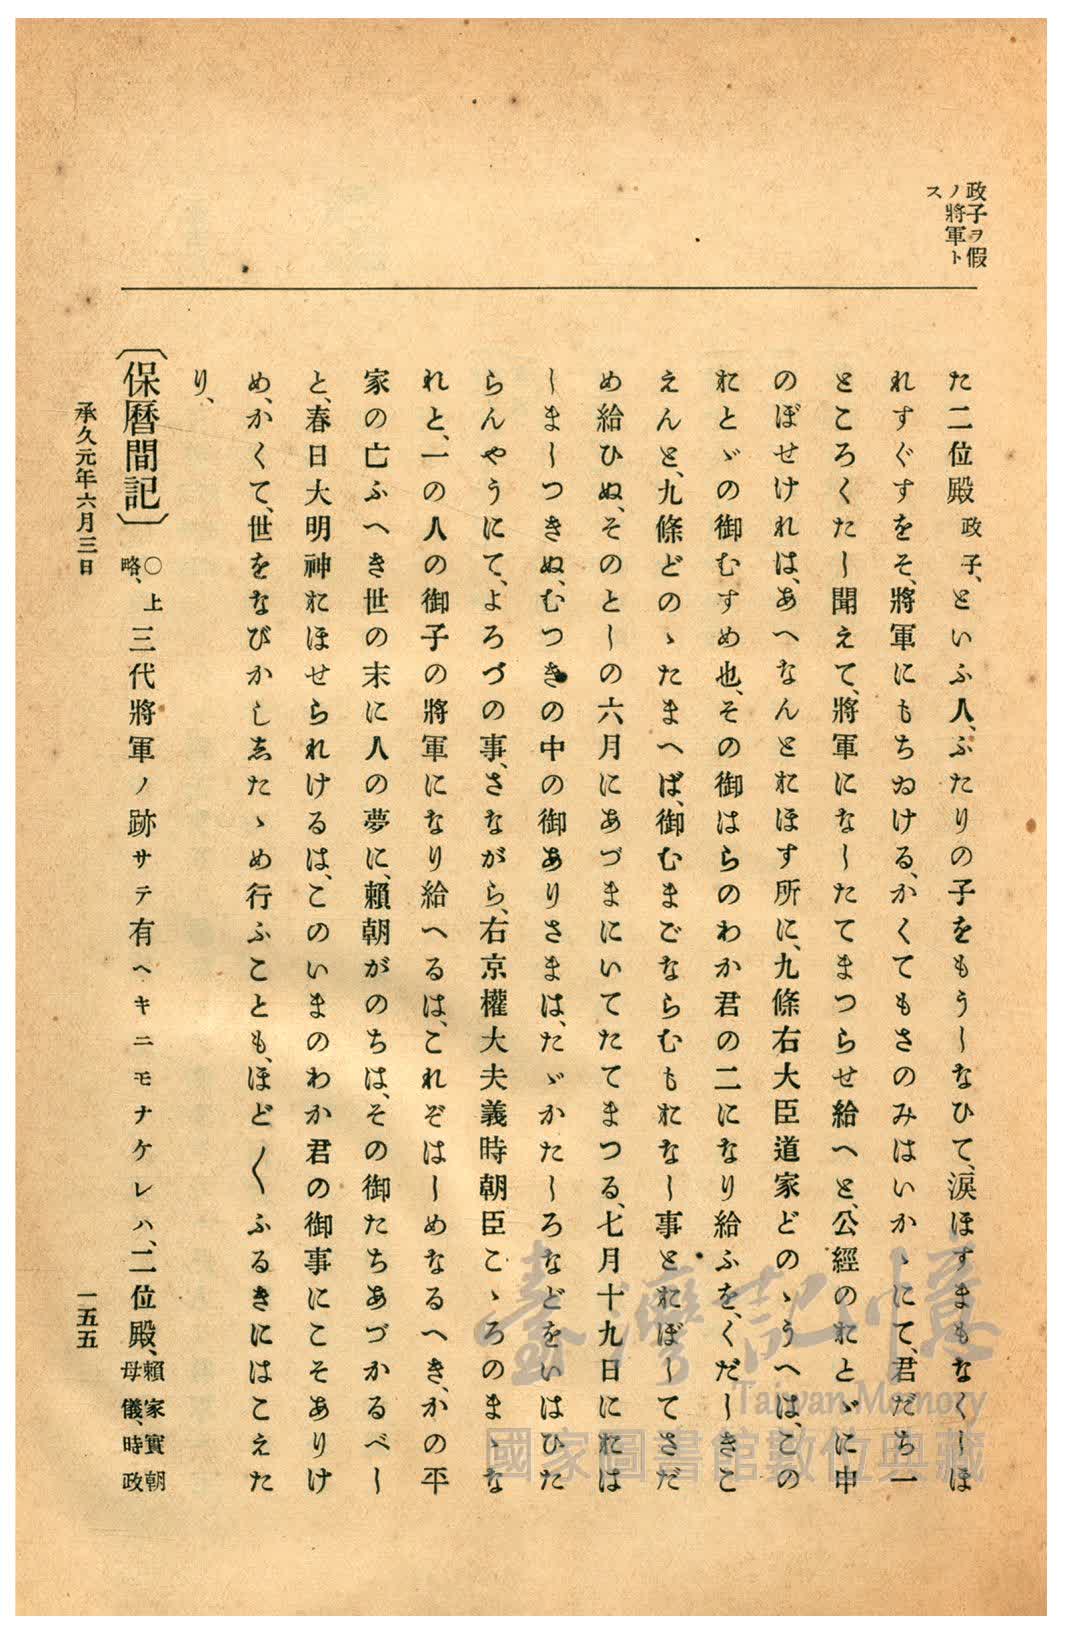 政子ヲ假
ノ將軍ト
ス
た二位殿政子、といふ人、ふたりの子をもうしなひて、涙ほすまもなくしほ
れすぐすをそ、將軍にもちゐける、かくてもさのみはいかゝにて、君だち一
ところくたし聞えて、將軍になしたてまつらせ給へと、公經のおとゞに申
のぼせけれは、あへなんとおほす所に、九條右大臣道家どのゝうへは、この
おとゞの御むすめ也、その御はらのわか君の二になり給ふを、くだしきこ
えんと、九條どのゝたまへば、御むまごならむもおなし事とおぼしてさだ
め給ひぬ、そのとしの六月にあづまにいてたてまつる、七月十九日におは
しましつきぬ、むつきの中の御ありさまは、たゞかたしろなどをいはひた
らんやうにて、よろづの事、さながら、右京權大夫義時朝臣こゝろのまゝな
れと、一の人の御子の將軍になり給へるは、これぞはしめなるへき、かの平
家の亡ふへき世の末に人の夢に、賴朝がのちは、その御たちあづかるべし
と、春日大明神おほせられけるは、このいまのわか君の御事にこそありけ
め、かくて、世をなびかしゑたゝめ行ふことも、ほど〱ふるきにはこえた
り、
〔保曆間記〕○上略、三代將軍ノ跡サテ有ヘキニモナケレハ、二位殿、賴家實朝母儀、時政
承久元年六月三日
一五五
臺灣記憶
Taiwan Memory
國家圖書館數位典藏